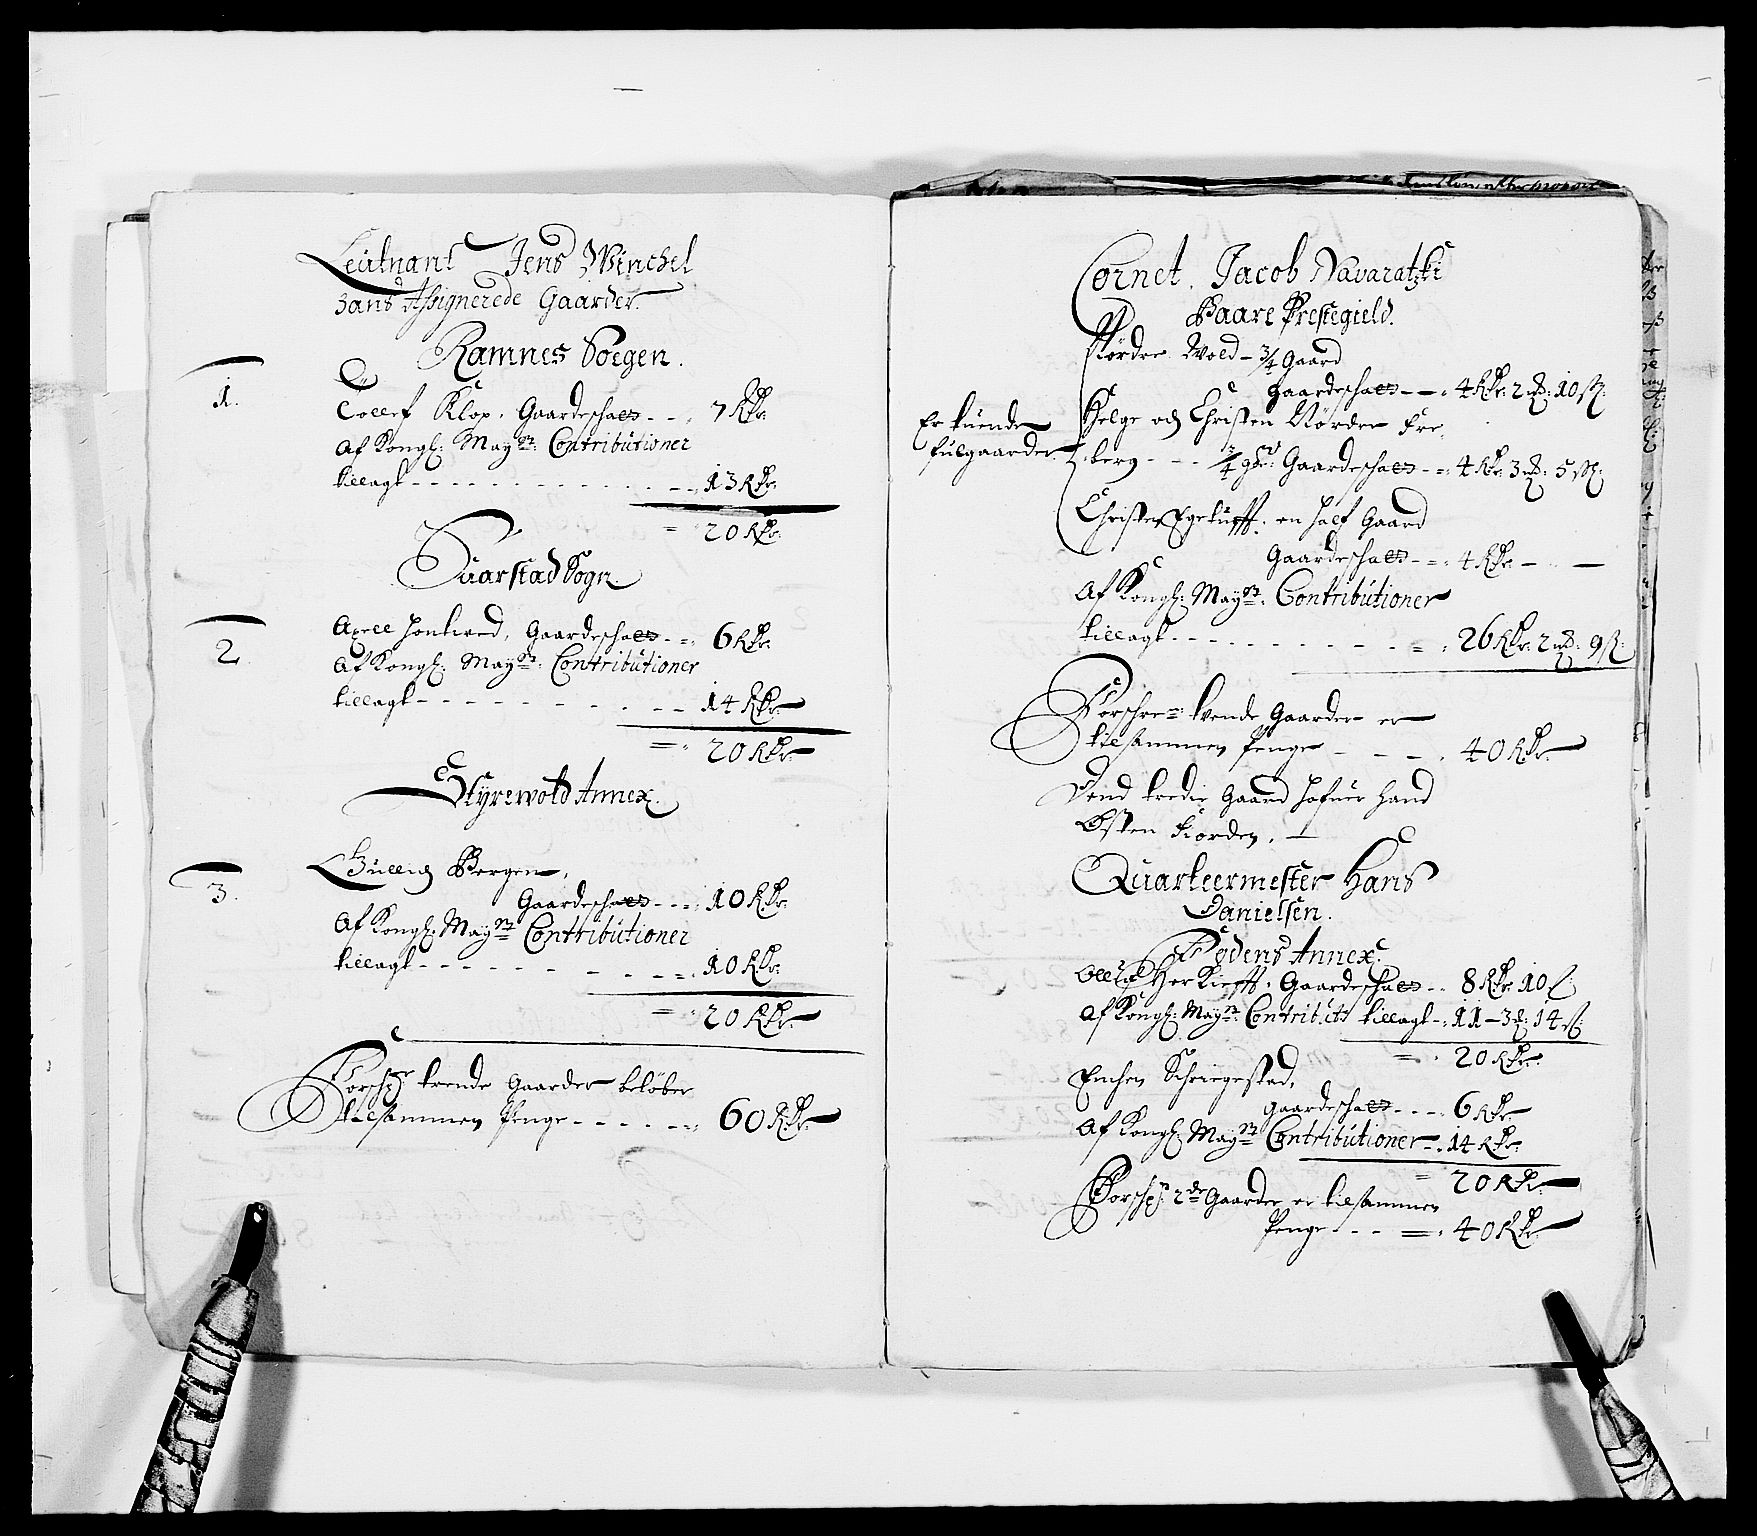 Leütnant Jens Winchel
hans Assignerede Gaarder
Ramnes Soegen.
1.
Tollef Klop, Gaardeschatt - - 7 Rdr.
Af Kongl: Mayst: Contributioner
tillagt - - - 13 Rdr.
= 20 Rdr.
Suarstad Sogn.
2
Axell Honkned, Gaardeschatt - - 6 Rdr.
Af Kongl: Mayst: Contributioner
tillagt - - - 14 Rdr.
= 20 Rdr.
Styrewold Annex.
3.
Gullich Bergen,
Gaardeschatt - - 10 Rdr.
Af Kongl: Mayst: Contributioner
tillagt - - - 10 Rdr.
= 20 Rdr.
Forschr: trende Gaarder belöber
tilsammen Penge - - - 60 Rdr.
Cornet. Jacob Navaratzki
Baare Prestegield.
Nördre Wold - 3/4 Gaard
Gaardeschatt - - 4 Rdr: 2 mk: 10 sk:
Er tuende
fulgaarder
Helge och Christen Nördre Fre-
berg - - 3/4 gd: Gaardeschatt - - 4 Rdr: 3 mk: 5 sk:
Christen Egetufft. en half Gaard
Gaardeschatt - - 4 Rdr. - -
Af Kongl: Mayst: Contributioner
tillagt - - - 26 Rdr: 2 mk: 9 sk:
Forschre: tvende Gaarder er
tilsammen Penge - - - 40 Rdr.
Dend tredie Gaard hafuer hand
Østen Fiorden. -
Quarteermester Hans
Danielsen.
Fodens Annex.
Olluf Herkiefft. Gaardeschatt - - 8 Rdr 10 s:
Af Kongl: Mayst: Contribut: tillagt - 11 - 3 mk: 14 s:
= 20 Rdr.
Emhen Schriegestad,
Gaardeschatt - - - 6 Rdr.
Af Kongl: Mayst: Contributioner - 14 Rdr.
= 20 Rdr.
Forschr: 2de Gaarder er tilsammen
Penge - - = 40 Rdr.